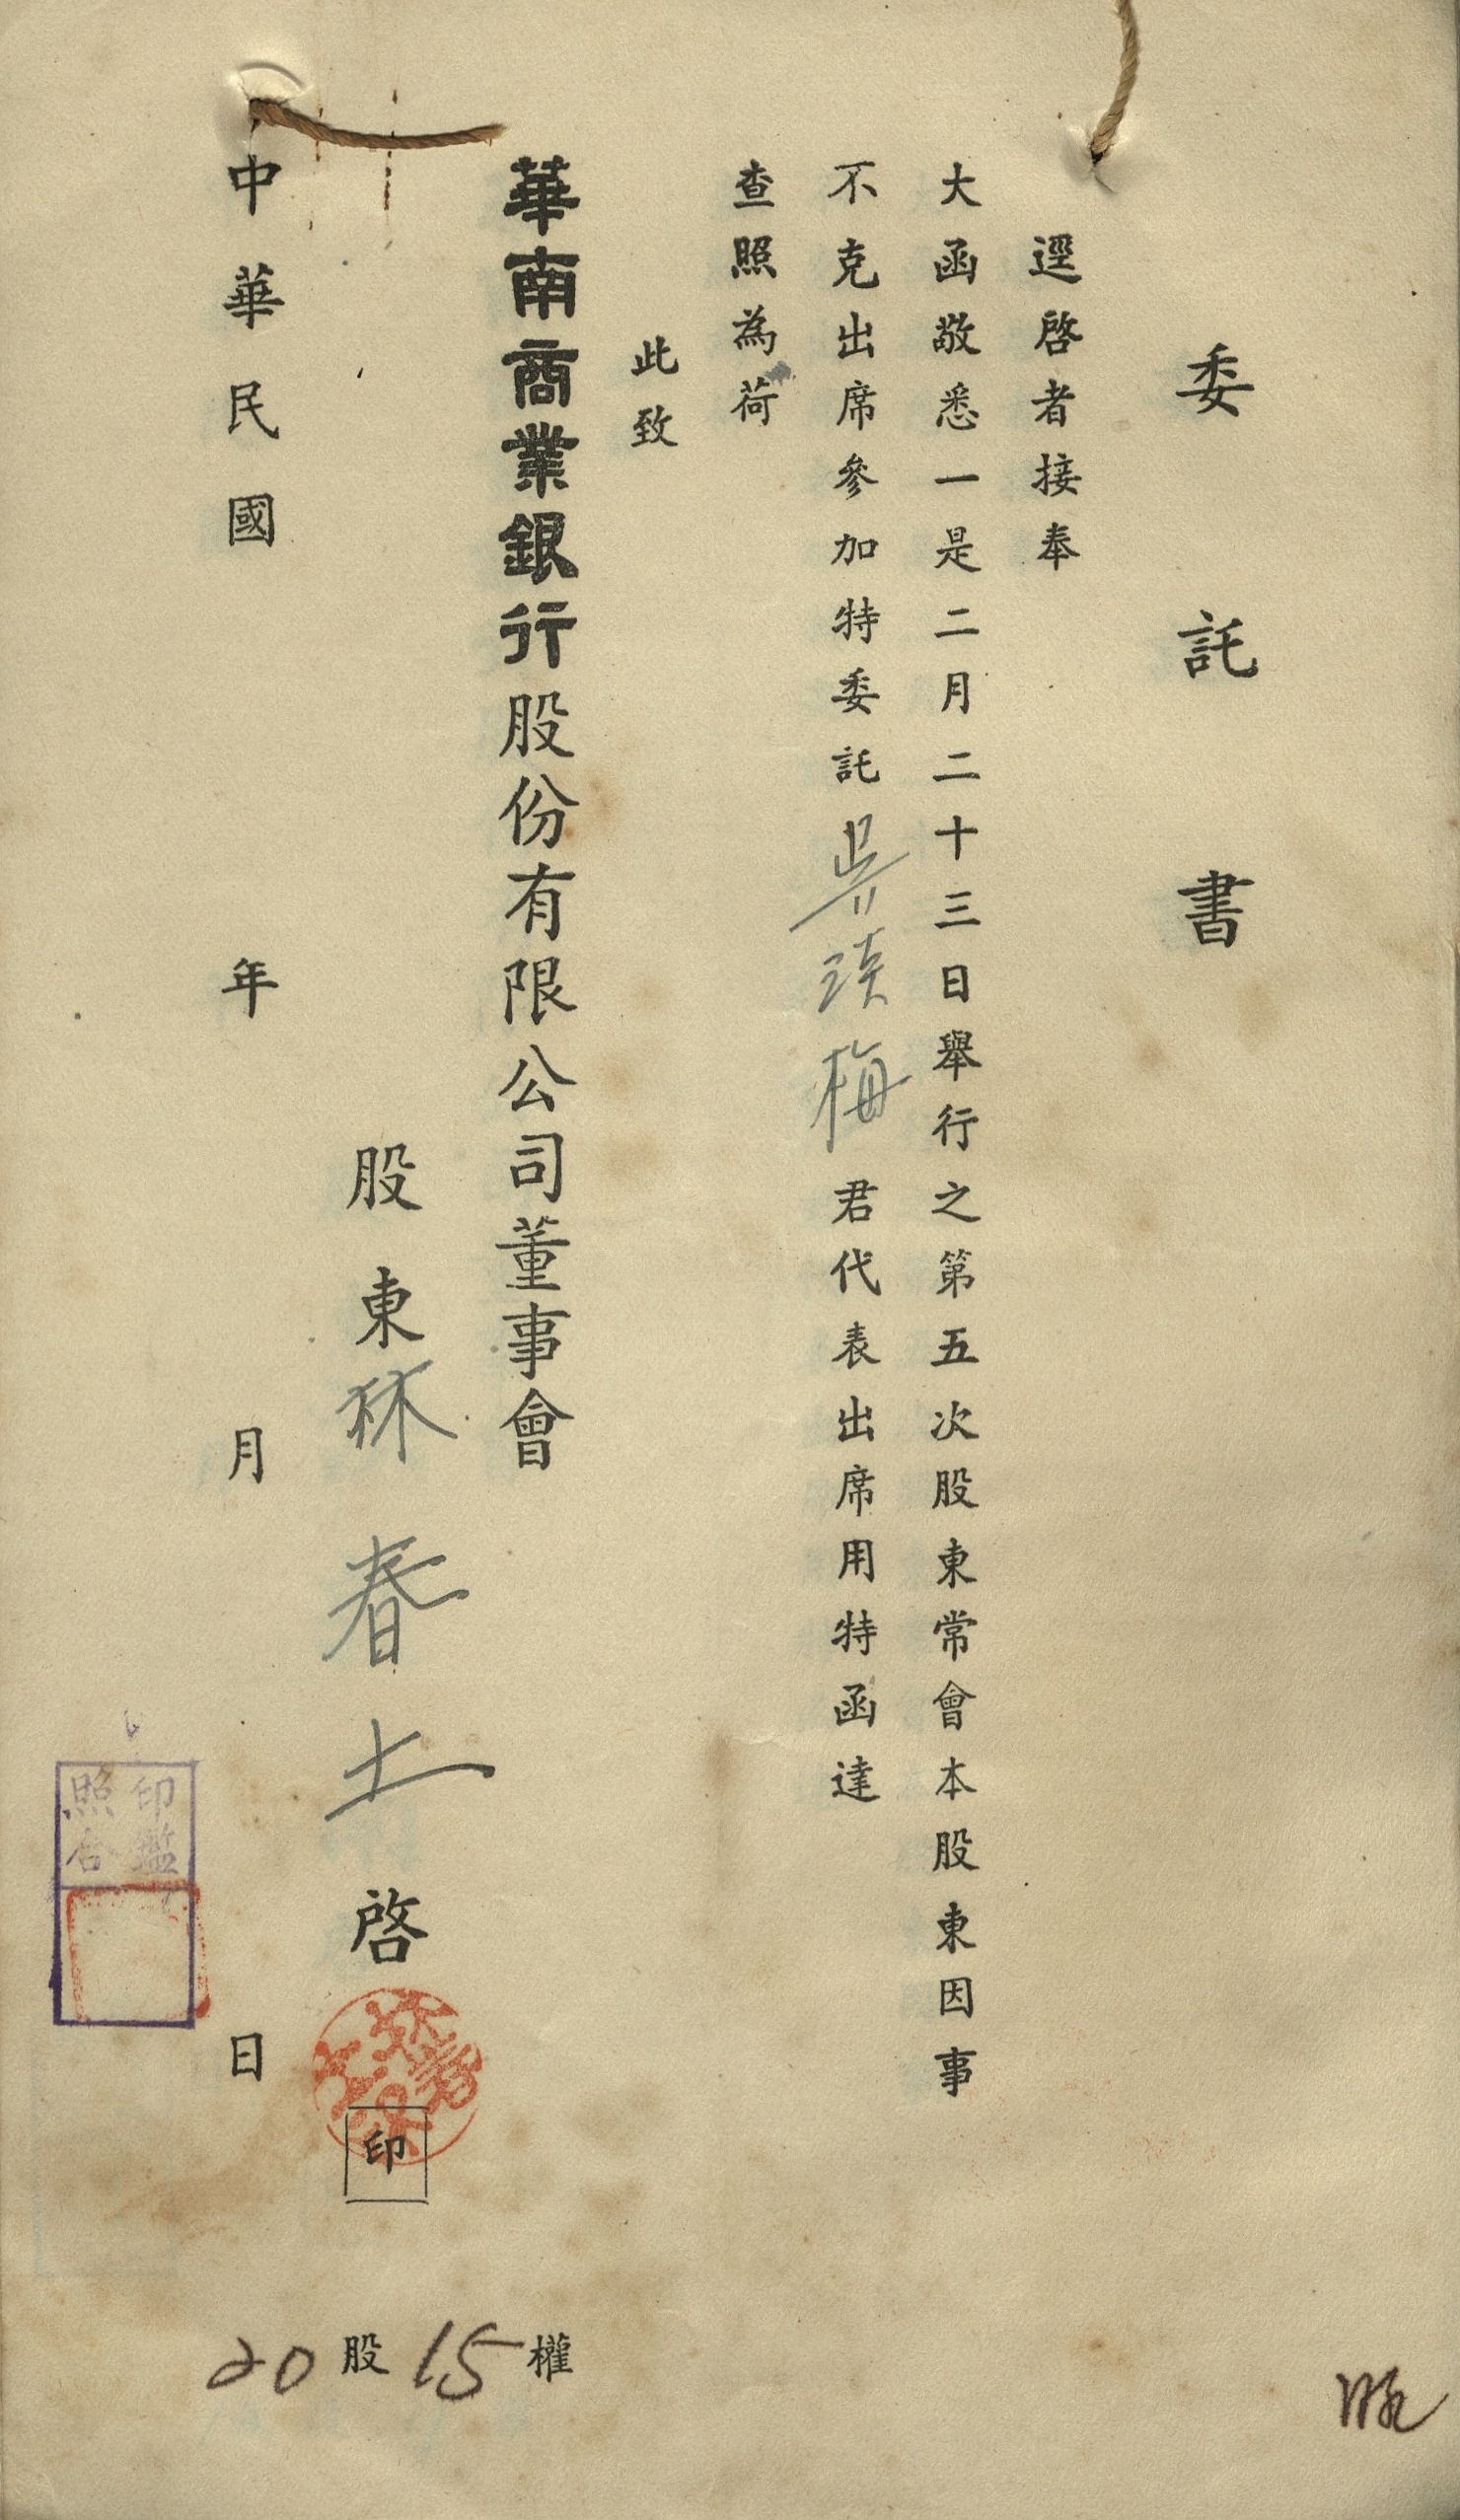 委託書
逕啓者接奉
大函敬悉一是二月二十三日舉行之第五次股東常會本股東因事
不克出席參加特委託吳瑛梅君代表出席用特函達
查照為荷
此致
華南商業銀行股份有限公司董事會
股東林春土啓
印
中華民國 年 月 日
印鑑
照合
20股15權